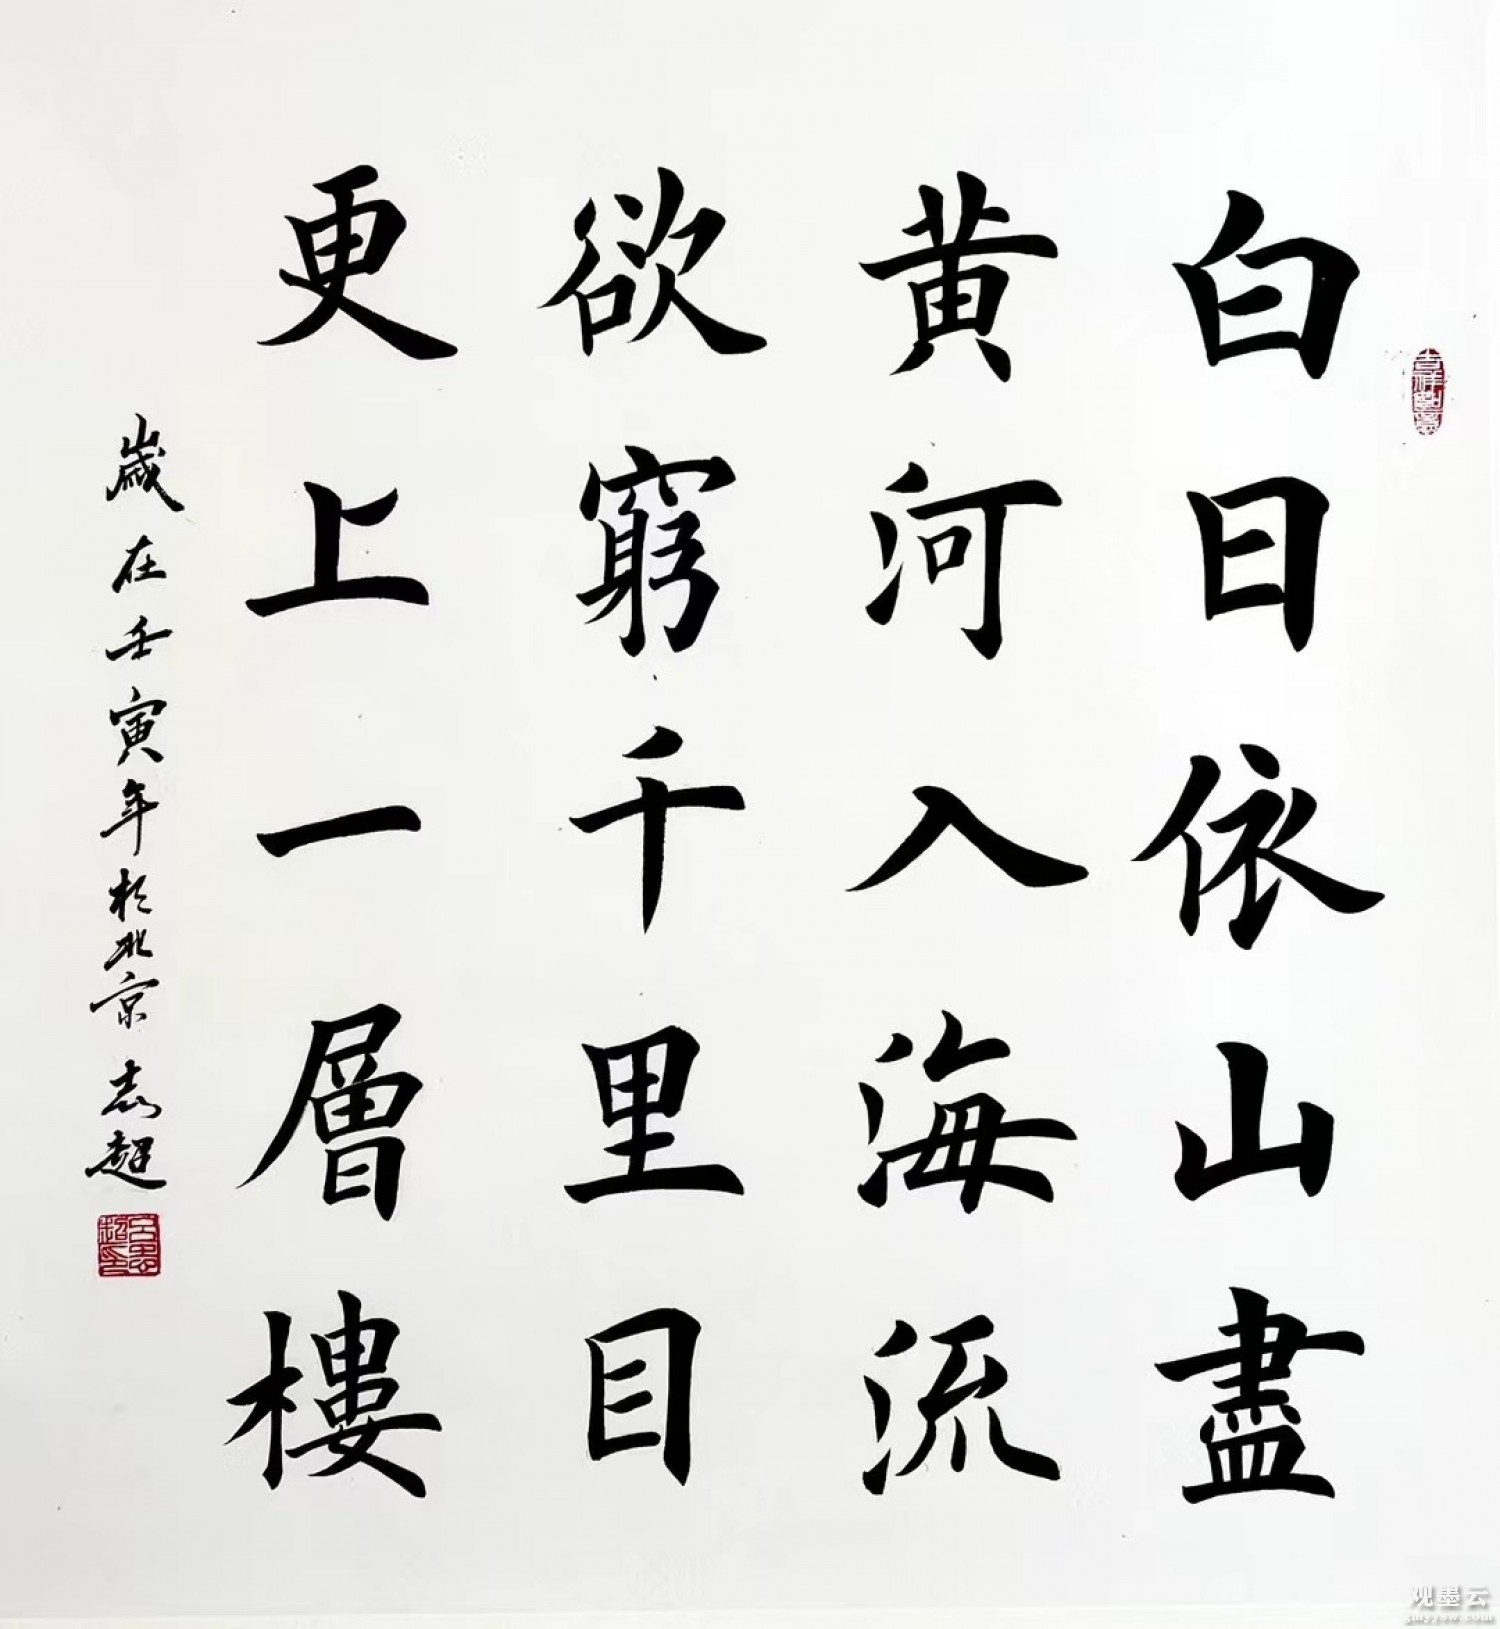 白日依山盡
黄河入海流
欲窮千里目
更上一層樓
歲在壬寅年於北京志超
吉祥如意
观墨云
gmyysw.com